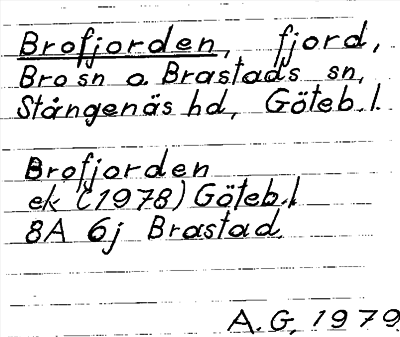 Brofjorden, fjord,
Bro sn o. Brastads sn,
Stångenäs hd, Göteb. l.
Brofjorden
ek (1978) Göteb. l
8A 6j Brastad.
A.G. 1979